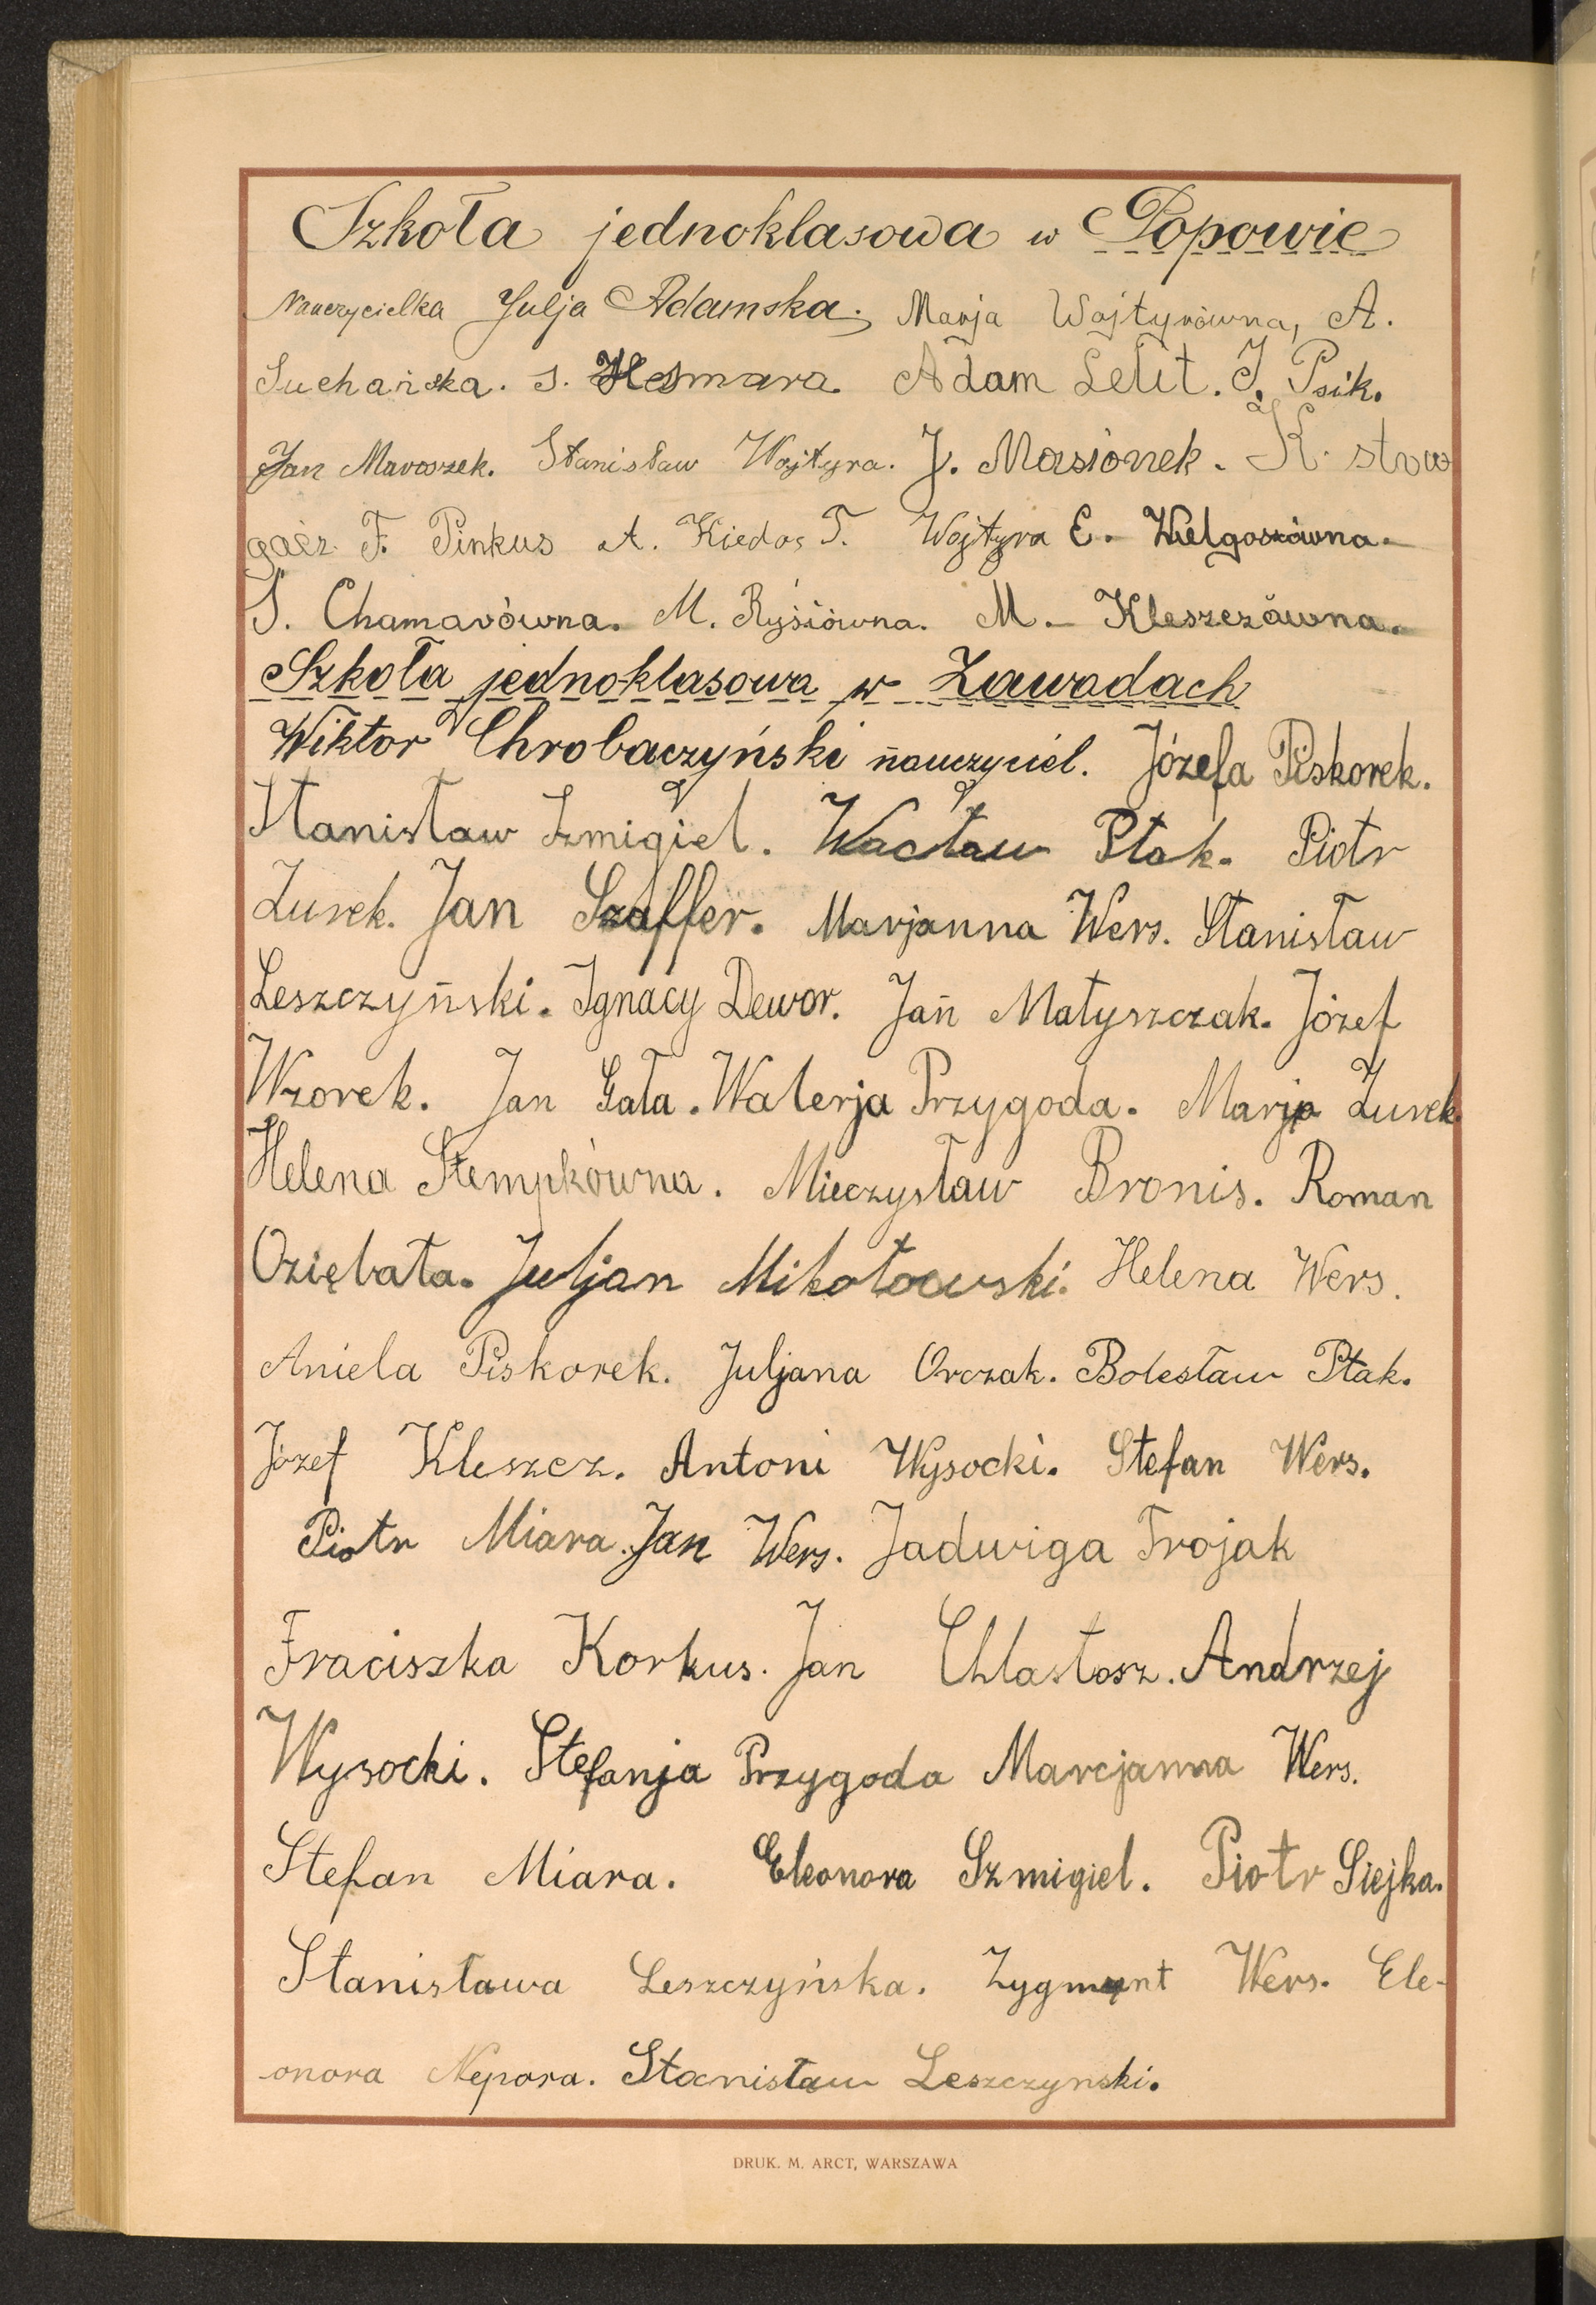 Szkoła jednoklasowa w Popowie
Nauczycielka Julja Adamska. Marja Wojtyrówna, A.
Suchańska. S. Adam Letit. J. Psik.
Jan Maroszek. Stanisław Wojtyra. J. Masionek. K. strw
gacz F. Pinkus A. Kiedos T. Wojtyra E. Wielgoszówna.
S. Chamarówna. M. Rysiówna. M. Kleszczówna.
Szkoła jednoklasowa w Zawadach
Wiktor Chrobaczyński nauczyciel. Józefa Piskorek.
Stanisław Szmigiel. Wacław Ptak. Piotr
Żurek. Jan Szaffer. Marjanna Wers. Stanisław
Leszczyński. Ignacy Dewor. Jan Matyszczak. Józef
Wzorek. Jan Gała. Walerja Przygoda. Marja Żurek.
Helena Stempkówna. Mieczysław Bronis. Roman
Oziębała. Juljan Mikołowski. Helena Wers.
Aniela Piskorek. Juljana Orczak. Bolesław Ptak.
Józef Kleszcz. Antoni Wysocki. Stefan Wers.
Piotr Miara. Jan Wers. Jadwiga Trojak
Fraciszka Korkus. Jan Chlastosz. Andrzej
Wysocki. Stefanja Przygoda Marcjanna Wers.
Stefan Miara. Eleonora Szmigiel. Piotr Siejka.
Stanisława Leszczyńska. Zygmunt Wers. Ele-
onora Nepora. Stanisław Leszczynski.
DRUK. M. ARCT, WARSZAWA